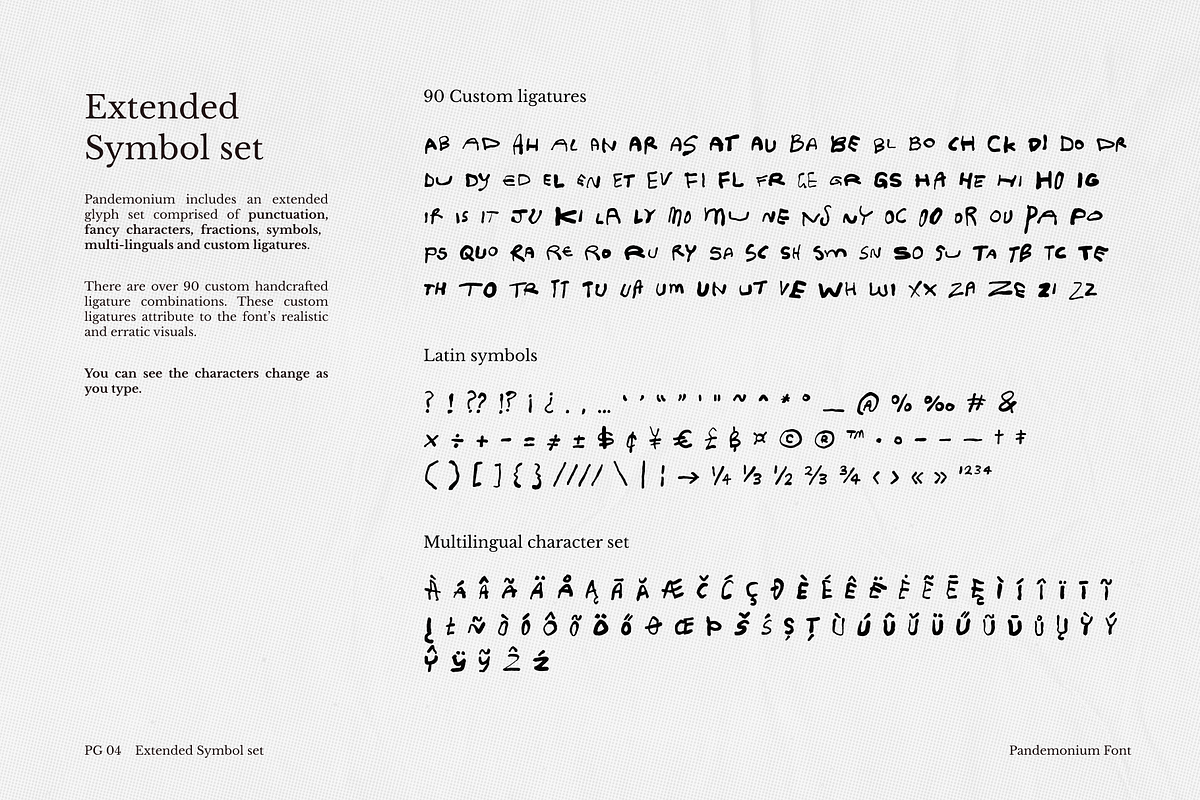 Extended
Symbol set
Pandemonium includes an extended
glyph set comprised of punctuation,
fancy characters, fractions, symbols,
multi-linguals and custom ligatures.
There are over 90 custom handcrafted
ligature combinations. These custom
ligatures attribute to the font's realistic
and erratic visuals.
You can see the characters change as
you type.
90 Custom ligatures
AB AD AH AL AN AR AS AT AU BA BE BL BO CH CK DI DO DR
DU DY ED EL EN ET EV FI FL FR GE GR GS HA HE HI HO IG
IR IS IT JU KI LA LY MO MU NE NS NY OC OO OR OU PA PO
PS QUO RA RE RO RU RY SA SC SH SM SN SO SU TA TB TC TE
TH TO TR TT TU UA UM UN UT VE WH WI XX ZA ZE ZI ZZ
Latin symbols
? ! ?? !? ¡ ¿ . , … ‘ ’ “ ” ' " ~ ^ * ° _ @ % ‰ # &
× ÷ + - = ≠ ± $ ¢ ¥ € £ ₿ ¤ © ® ™ · ∘ - – — † ‡
( ) [ ] { } //// \ | ¦ → ¼ ⅓ ½ ⅔ ¾ ‹ › « » ¹²³⁴
Multilingual character set
À Á Â Ã Ä Å Ą Ā Ă Æ Č Ć Ç Ð È É Ê Ë Ė Ẽ Ē Ę Ì Í Î Ï Ī Ĩ
Į Ł Ñ Ò Ó Ô Õ Ö Ő Ø Œ Þ Š Ś Ş Ţ Ù Ú Û Ŭ Ü Ű Ũ Ū Ů Ų Ỳ Ý
Ŷ Ÿ Ỹ Ẑ Ź
PG 04 Extended Symbol set
Pandemonium Font